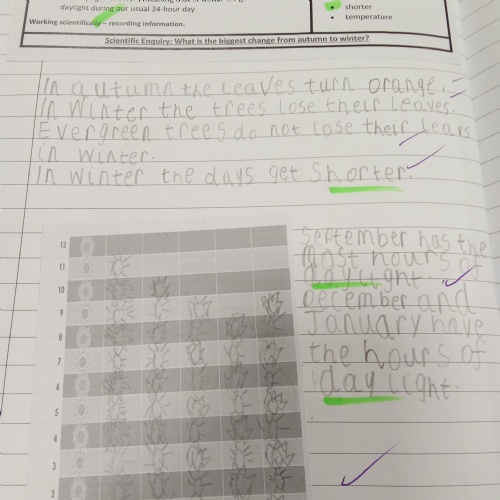 daylight during our usual 24-hour day
Working scientifically – recording information.
shorter
temperature
Scientific Enquiry: What is the biggest change from autumn to winter?
In autumn the leaves turn orange.
In Winter the trees lose their leaves.
Evergreen trees do not lose their lears
in winter.
In winter the days get Shorter.
September has the
most hours of
daylight.
December and
January have
the hours of
daylight.
12
11
10
9
8
7
6
5
4
3
2